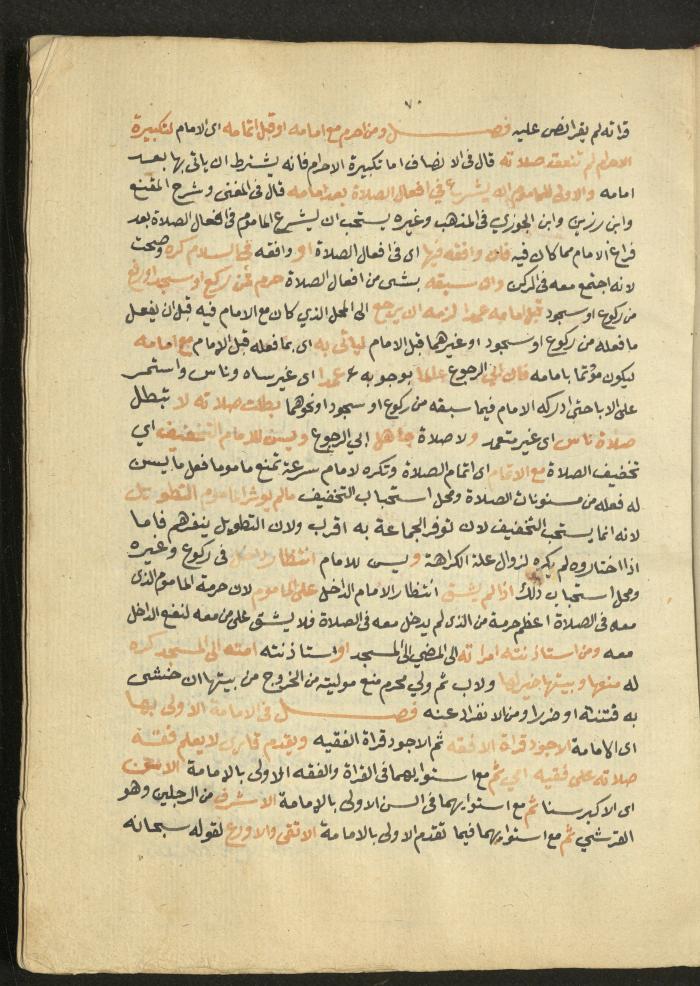 ٧٠
قراته لم يقرا نص عليه فصل ومن احرم مع امامه او قبل اتمامه اى الامام لتكبيرة
الاحرام لم تنعقد صلاته قال فى الانصاف اما تكبيرة الاحرام فانه يشترط ان ياتى بها بعد
امامه والاولى للماموم ان يشرع في افعال الصلاة بعد امامه قال فى المغنى وشرح المقنع
وابن رزين وابن الجوزي فى المذهب وغيره يستحب ان يشرع الماموم فى افعال الصلاة بعد
فراغ الامام مما كان فيه فان وافقه فيها اى فى افعال الصلاة او وافقه في السلام كره وصحت
لانه اجتمع معه فى الركن وان سبقه بشى من افعال الصلاة حرم فمن ركع او سجد او رفع
من ركوع او سجود قبل امامه عمدا لزمه ان يرجع الى المحل الذي كان مع الامام فيه قبل ان يفعل
ما فعله من ركوع او سجود او غيرهما قبل الامام لياتى به اى بما فعله قبل الامام مع امامه
ليكون موتما بامامه فان ابى الرجوع عالما بوجوبه عمدا اى غير ساه وناس واستمر
على الابا حتى ادركه الامام فيما سبقه من ركوع او سجود او نحوهما بطلت صلاته لا تبطل
صلاة ناس اى غير متعمد ولا صلاة جاهل الي الرجوع ويسن للامام التخفيف اي
تخفيف الصلاة مع الاتمام اى اتمام الصلاة وتكره لامام سرعة تمنع ماموما فعل ما يسن
له فعله من مسنونات الصلاة ومحل استحباب التخفيف مالم يوثر الماموم التطويل
لانه انما يستحب التخفيف لان توفر الجماعة به اقرب ولان التطويل ينفرهم فاما
اذا اختاروه لم يكره لزوال علة الكراهة ويسن للامام انتظار داخل فى ركوع وغيره
ومحل استحباب ذلك اذا لم يشق انتظار الامام الداخل على الماموم لان حرمة الماموم الذى
معه فى الصلاة اعظم حرمة من الذى لم يدخل معه فى الصلاة فلا يشق على من معه لنفع الداخل
معه ومن استاذنته امراته الى المضي الى المسجد او استاذنته امته الى المسجد كره
له منعها وبيتها خير لها ولاب ثم ولي محرم منع موليته من الخروج من بيتها ان خشى
به فتنة او ضررا ومن الانفراد عنه فصل فى الامامة الاولى بها
اى الامامة الاجود قراة الافقه ثم الاجود قراة الفقيه ويقدم قارى لا يعلم فقه
صلاته على فقيه امي ثم مع استوايهما فى القراة والفقه الاولى بالامامة الاسن
اى الاكبر سنا ثم مع استوايهما فى السن الاولى بالامامة الاشرف من الرجلين وهو
القرشي ثم مع استوايهما فيما تقدم الاولى بالامامة الاتقى والاورع لقوله سبحانه